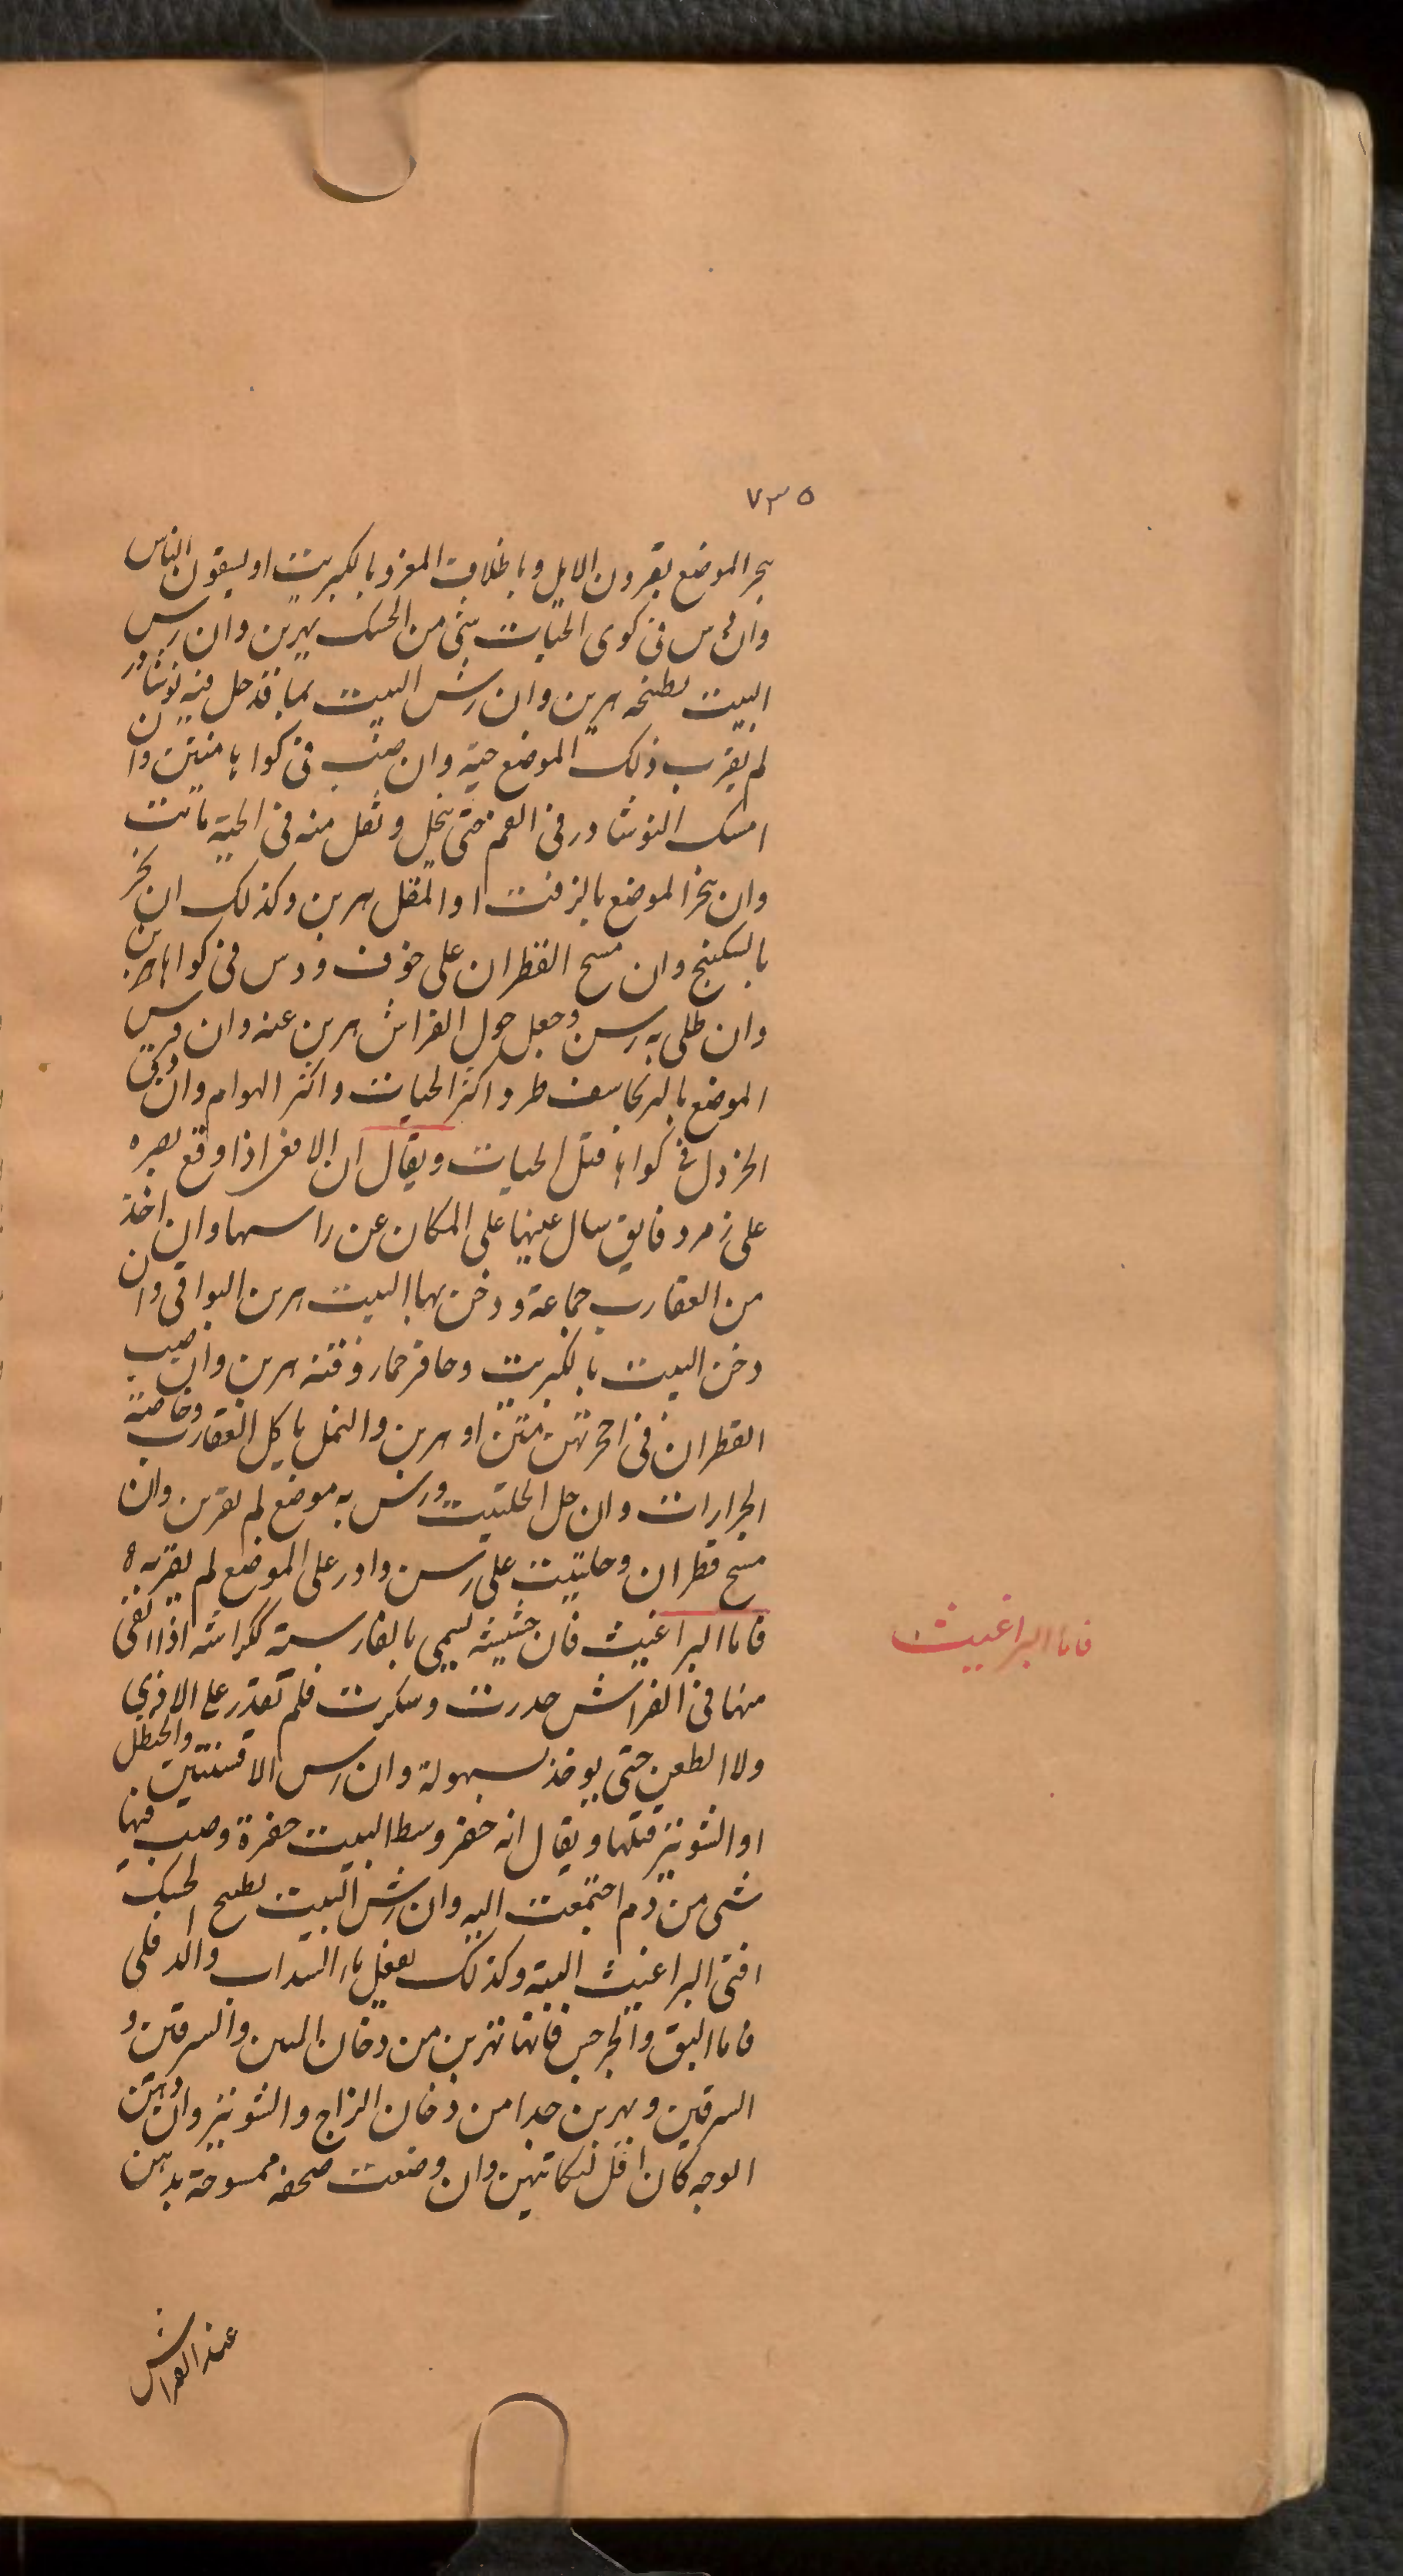 ٧٣٥
بخر الموضع بقرون الايل وباظلاف المعز وبالكبريت او يسقون الناس
وان دس فى كوى الحيات شئ من الحسك يهربن وان رس
البيت بطبخه هربن وان رش البيت بما قد حل فيه نوشادر
لم يقرب ذلك الموضع حية وان صب فى كواها متن وان
امسك النوشادر فى الفم حتى ينحل وتفل منه فى الحية ماتت
وان بخر الموضع بالزفت او المقل هربن وكذلك ان بخر
بالسكبنج وان مسح القطران على خرف ودس فى كواها هربن
وان طلى به رسن وجعل حول الفراش هربن عنه وان فرس
الموضع بالبرنجاسف طرد اكثر الحيات واكثر الهوام وان دق
الخردل فى كواها قتل الحيات ويقال ان الافعى اذا وقع بصره
على زمرد فايق سال عينها على المكان عن راسها وان اخذ
من العقارب جماعة ودخن بها البيت هربن البواقى وان
دخن البيت بالكبريت وحافر حمار وقنه هربن وان صب
القطران فى احجرتهن متن او هربن والنمل ياكل العقارب وخاصة
الجرارات وان حل الحلتيت ورش به موضع لم يقربن وان
مسح قطران وحلتيت على رسن وادر على الموضع لم يقربه ه
فاما البراغيث فان حشيشه يسمى بالفارسية ككراشه اذا القى
منها فى الفراش خدرت وسكرت فلم تقدر على الاذى
ولا الطعن حتى يوخذ بسهولة وان رس الافسنتين والحنظل
او الشونيز قتلها ويقال انه حفر وسط البيت حفرة وصب فيها
شى من دم اجتمعت اليه وان رش البيت بطبخ الحسك
افنى البراغيث البتة وكذلك يفعل ماء السداب والدفلى
فاما البق والجرجس فانها تهربن من دخان التبن والسرقين و
السرقين ويهربن جدا من دخان الزاج والشونيز وان دهن
الوجه كان اقل لنكاتهن وان وضعت صحفه ممسوحة بدهن
عند الفراش
فاما البراغيث